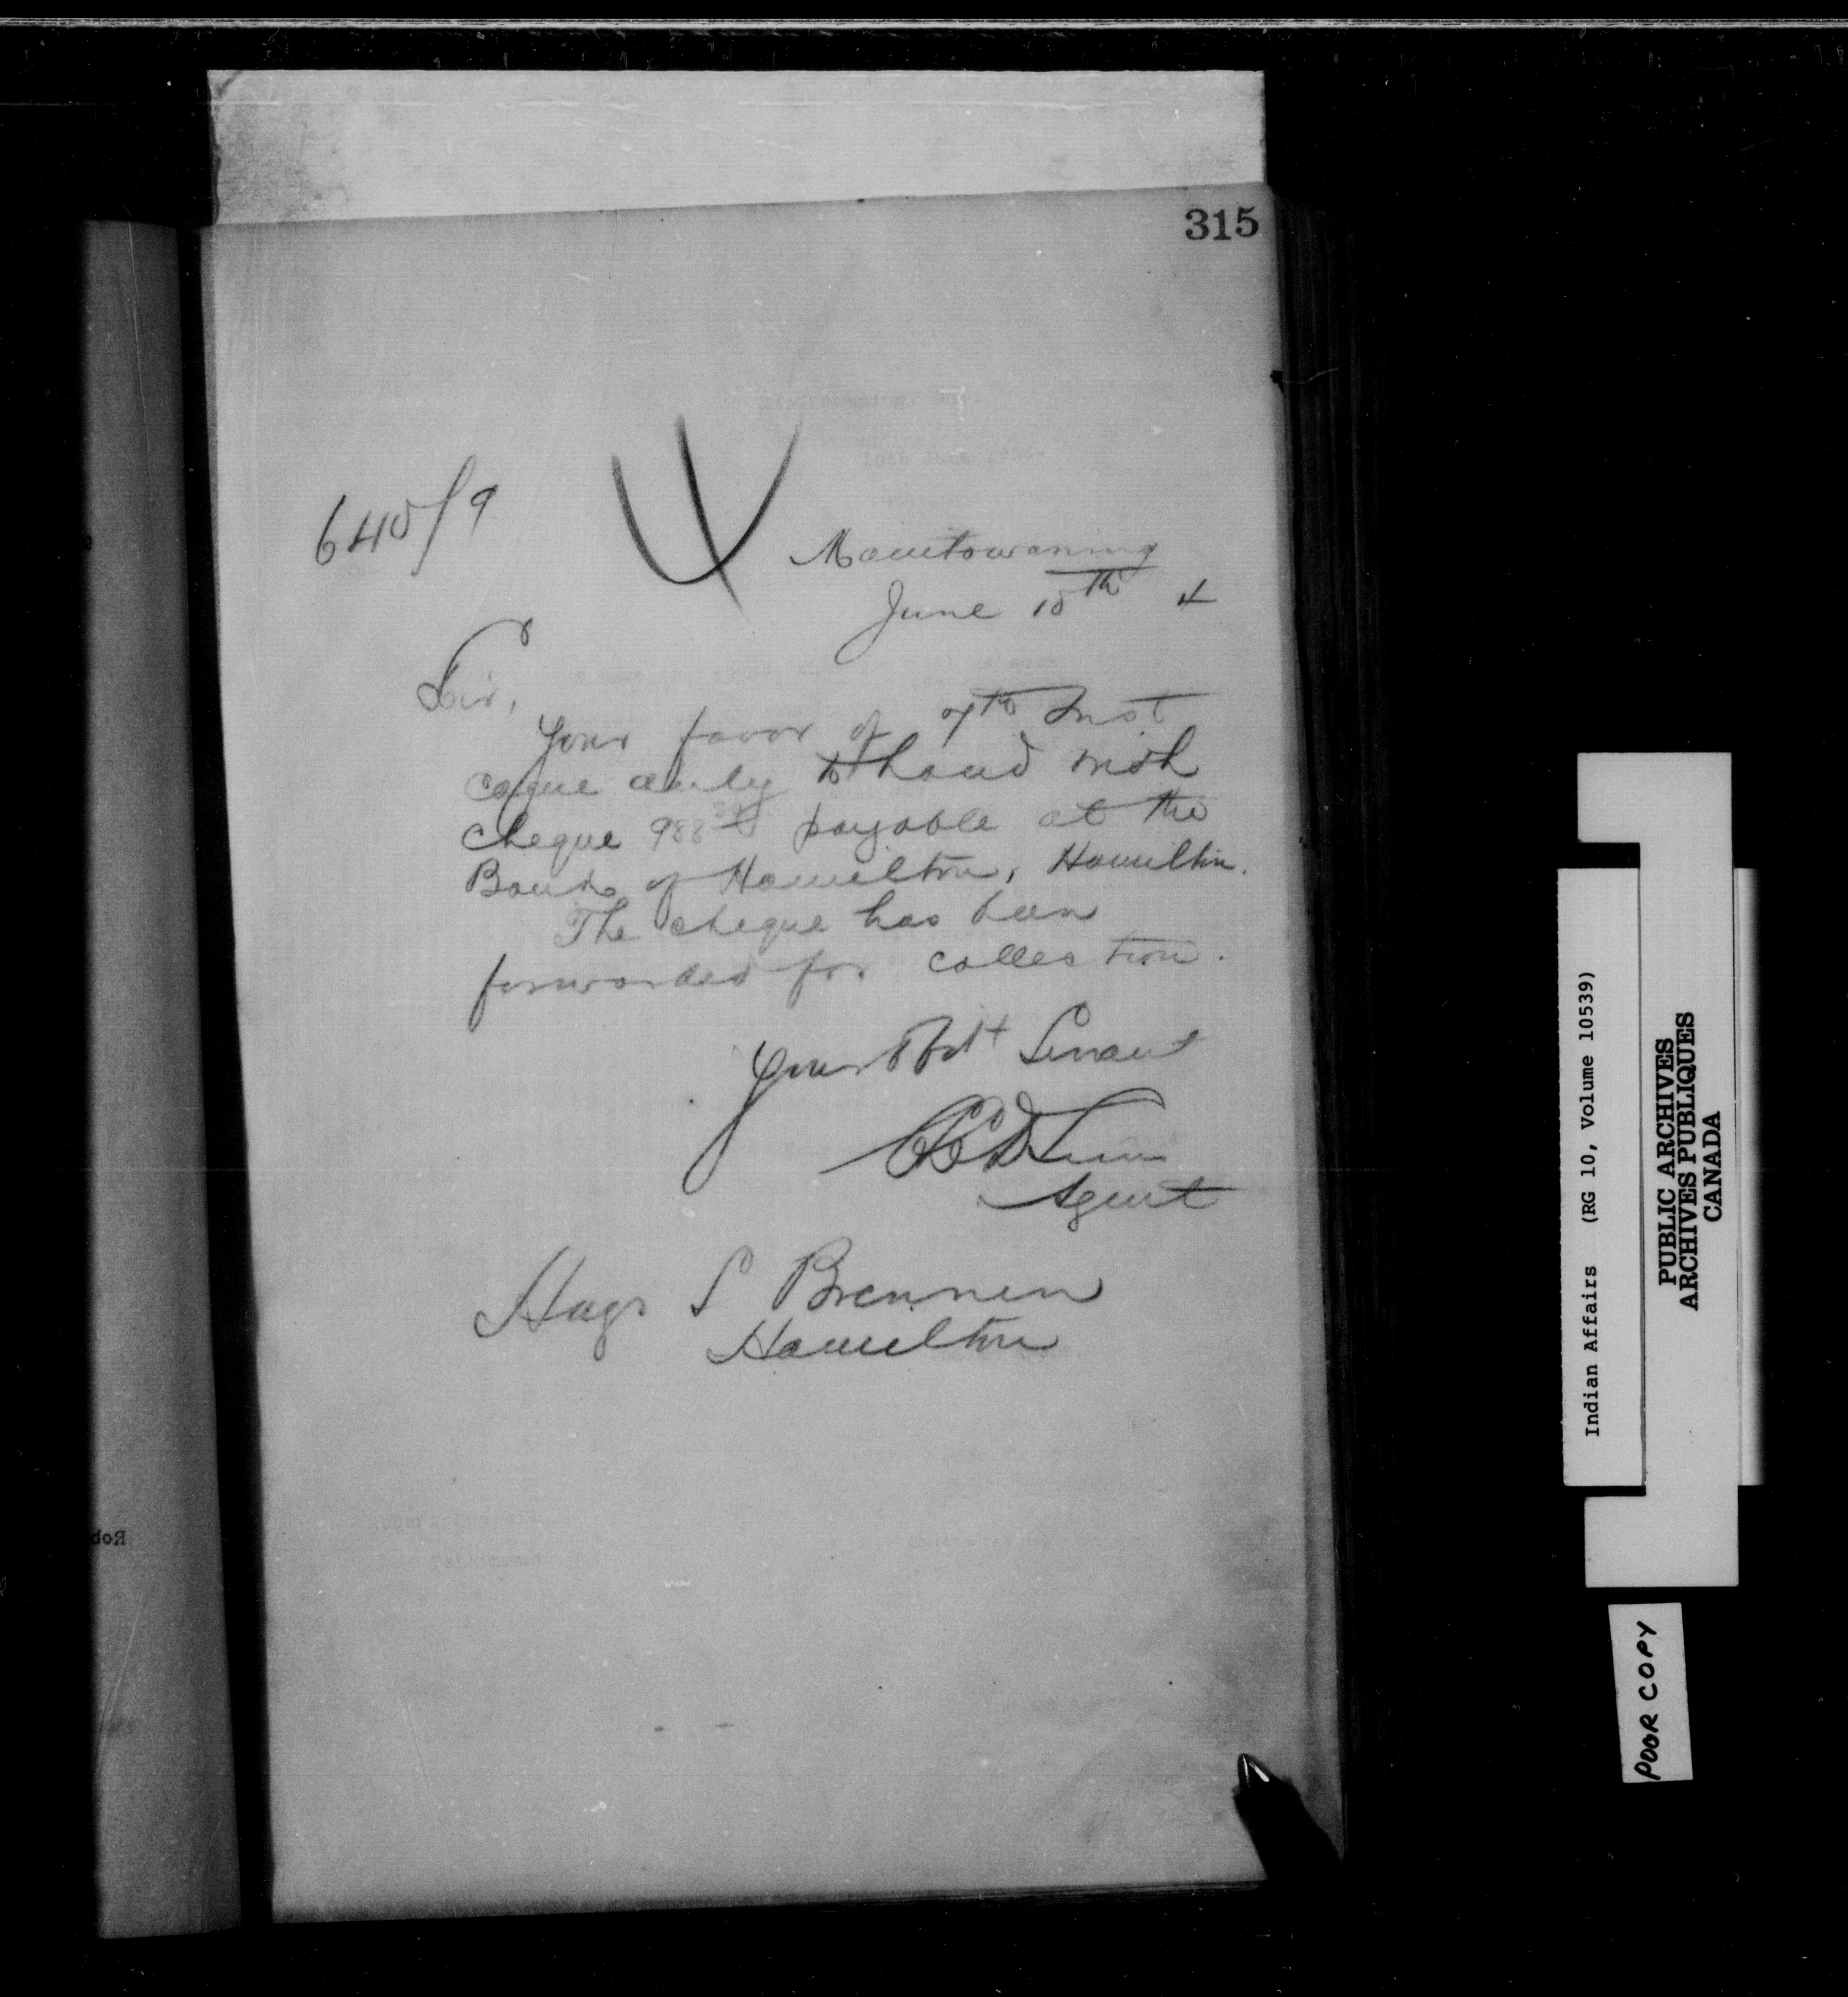 315
640/9
Manitowaning
June 10th 4
Sir,
Your favor of 7th Inst
came duly to hand with
cheque 988 payable at the
Bank of Hamilton, Hamilton.
The cheque has been
forwarded for collection.
Your Obt Servant
Agent
S Brennen
Hamilton
Indian Affairs (RG 10, Volume 10539)
PUBLIC ARCHIVES
ARCHIVES PUBLIQUES
CANADA
POOR COPY